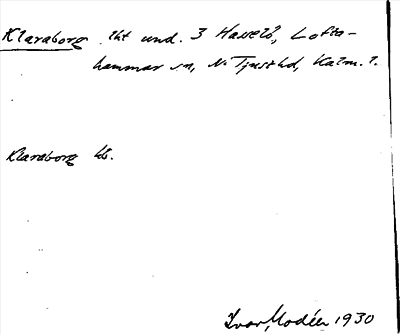 Klaraborg lht und. 3 Hasselö, Lofta-
hammar sn, N. Tjust hd, Kalm. l.
Klaraborg kb.
Ivar Modéer 1930